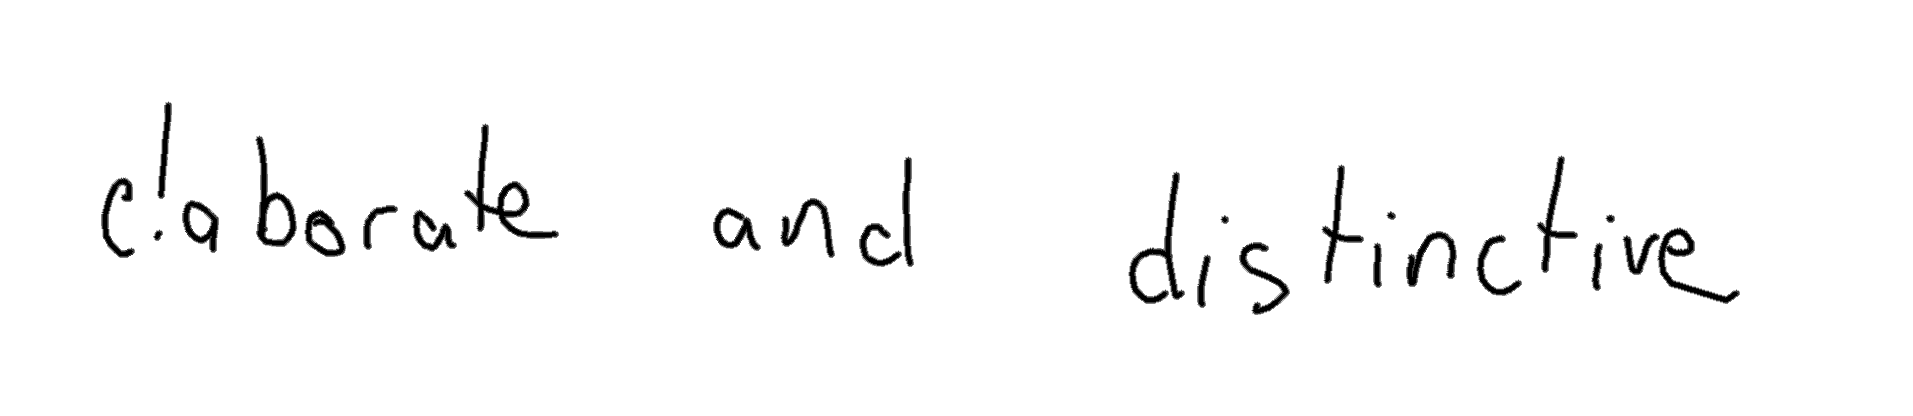 elaborate and distinctive